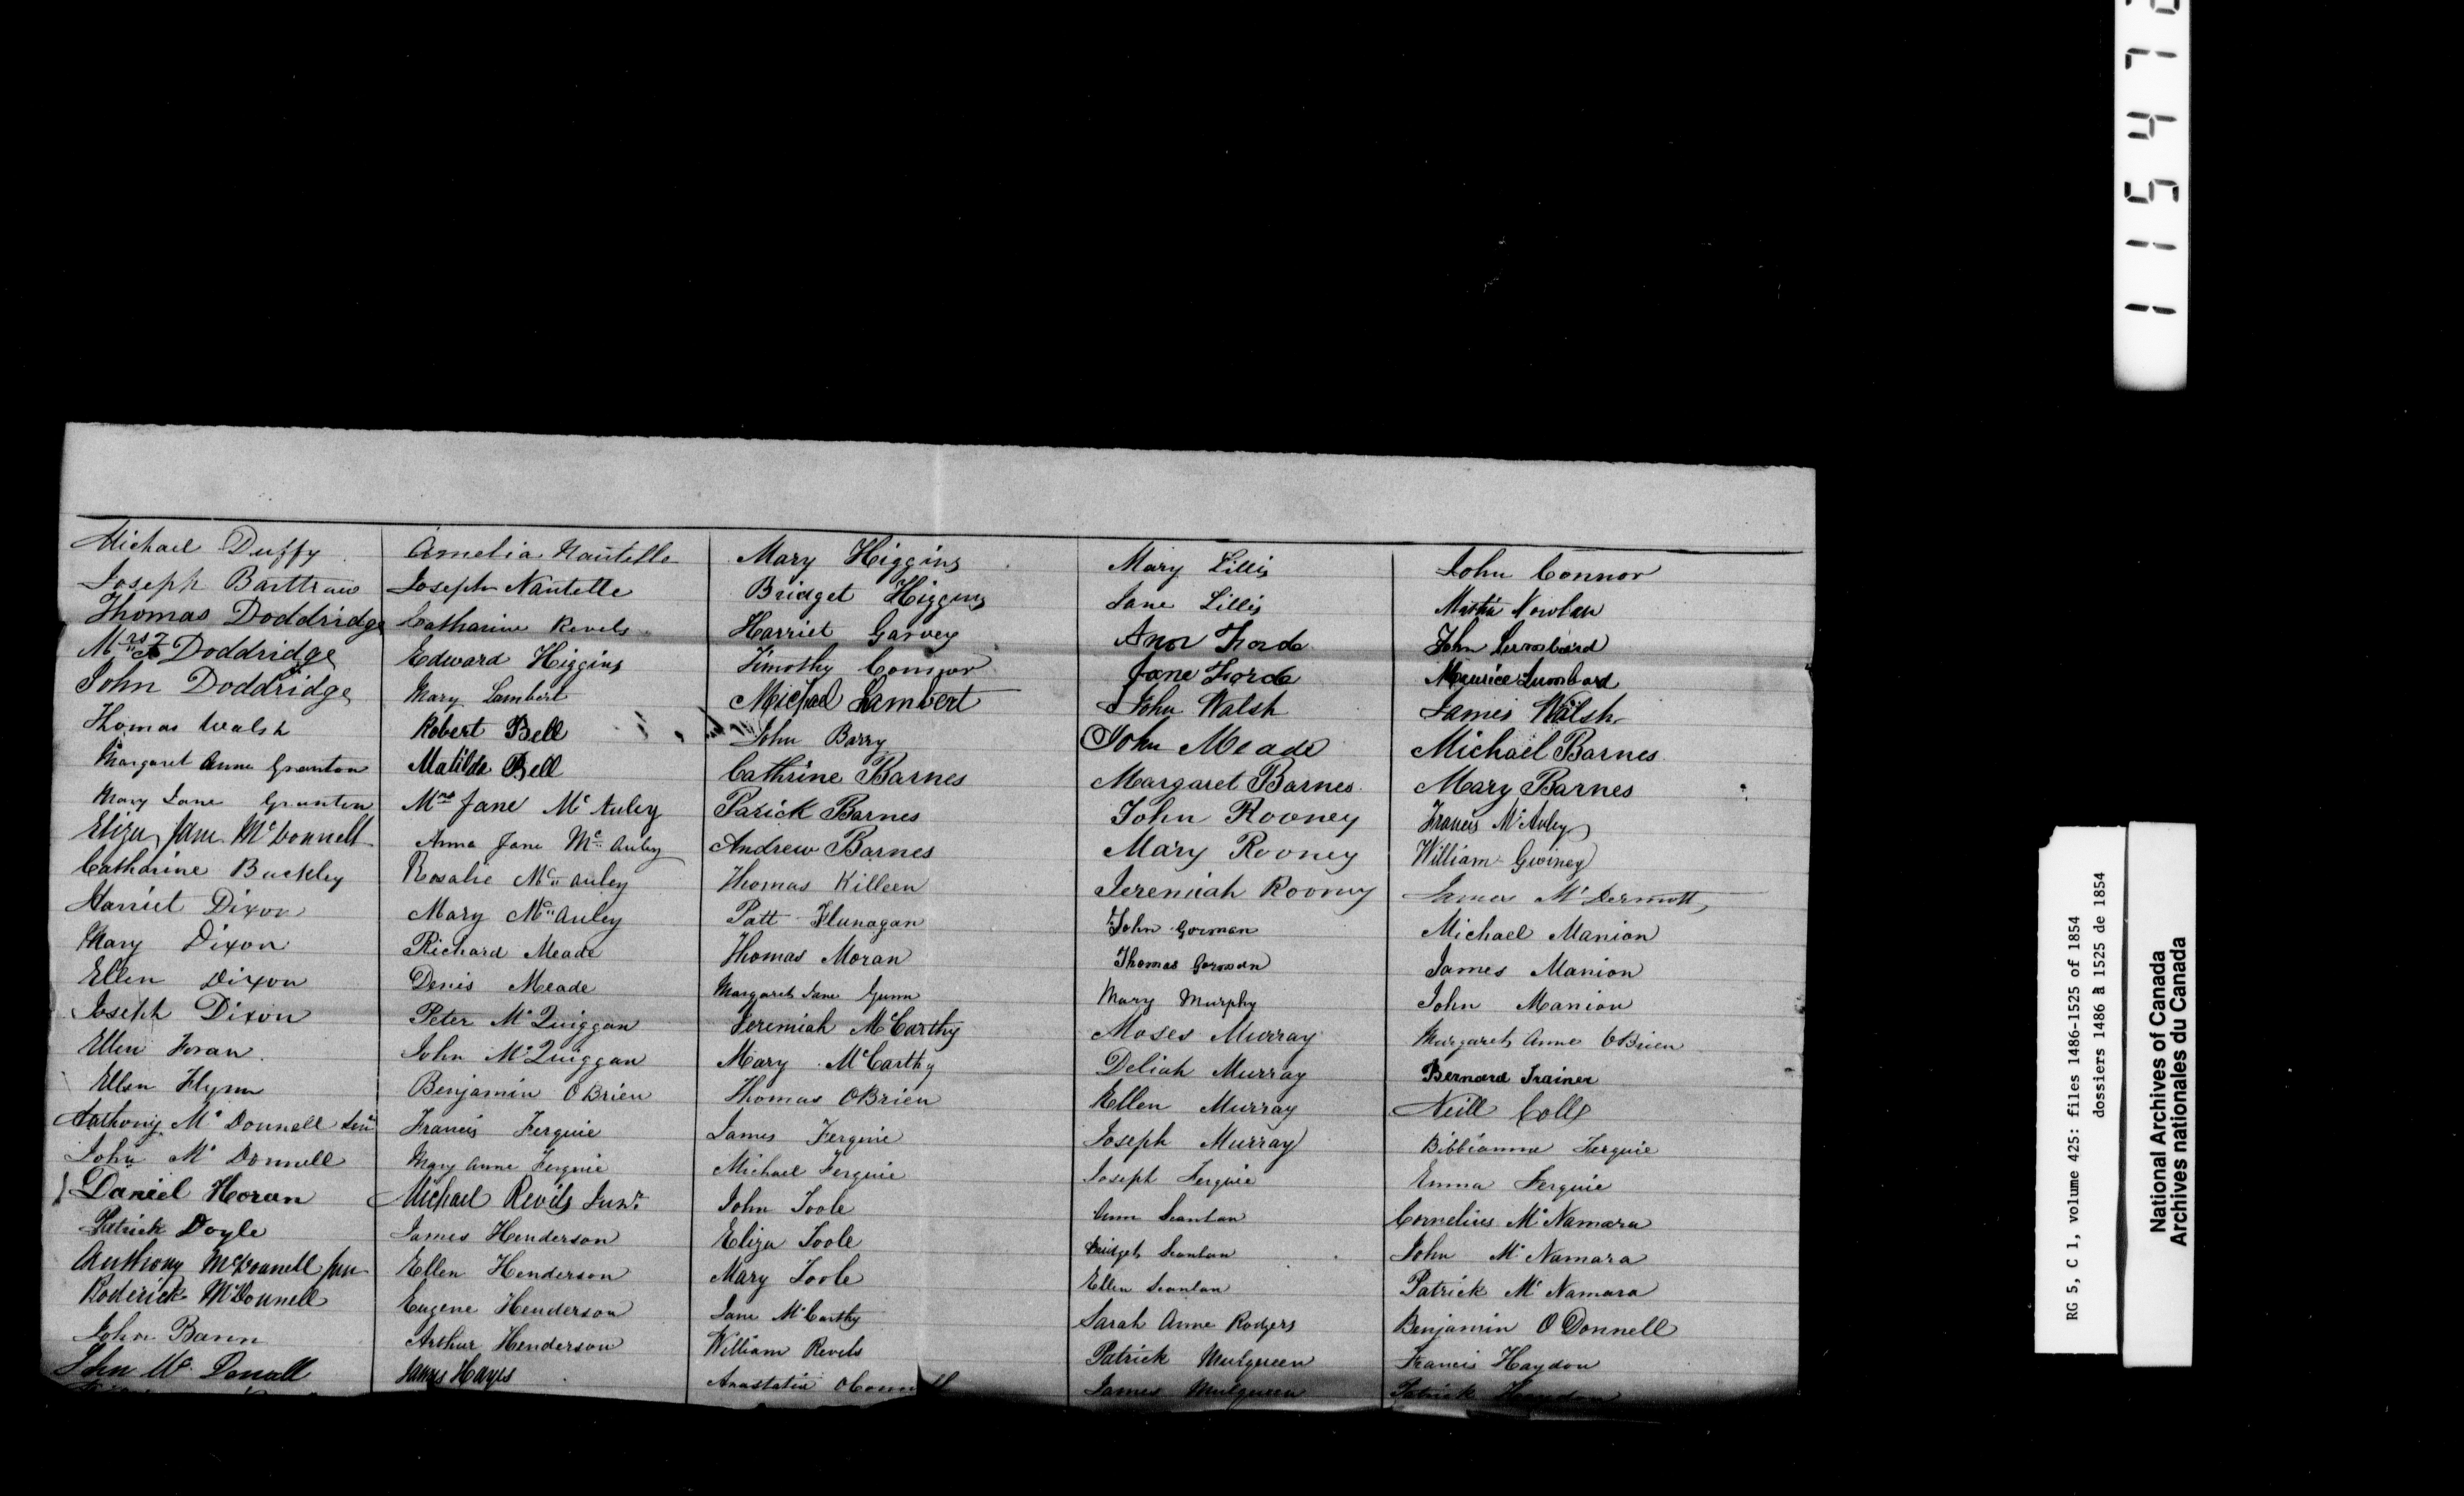 Michael Duffy
Joseph Barttraw
Thomas Doddridge
Mrs T Doddridge
John Doddridge
Thomas Walsh
Margaret Anne Granton
Mary Jane Granton
Eliza Jane McDonnell
Catharine Buckley
Harriet Dixon
Mary Dixon
Ellen Dixon
Joseph Dixon
Ellen Foran
Ellen Flynn
Anthony Mc Donnell Senr
John Mc Donnell
Daniel Horan
Patrick Doyle
Anthony McDonnell Jun
Roderick McDonnell
John Bann
John Mc Donall
Amelia Nautelle
Joseph Nautelle
Catharine Revels
Edward Higgins
Mary Lambert
Robert Bell
Matilda Bell
Mrs Jane Mc Auley
Anna Jane Mc Auley
Rosalie Mc Auley
Mary Mc Auley
Richard Meade
Denis Meade
Peter Mc Quiggan
John Mc Quiggan
Benjamin O Brien
Francis Ferguie
Mary Anne Ferguie
Michael Revels Junr
James Henderson
Ellen Henderson
Eugene Henderson
Arthur Henderson
James Hayes
Mary Higgins
Bridget Higgins
Harriet Garvey
Timothy Connor
Michael Lambert
John Barry
Cathrine Barnes
Patick Barnes
Andrew Barnes
Thomas Killeen
Patt Flunagan
Thomas Moran
Margaret Jane Gunn
Jeremiah McCarthy
Mary McCarthy
Thomas OBrien
James Ferguie
Michael Ferguie
John Toole
Eliza Toole
Mary Toole
Jane McCarthy
William Revels
Anastatia
Mary Lillis
Jane Lillis
Ann Forde
Jane Forde
John Walsh
John Meade
Margaret Barnes
John Rooney
Mary Rooney
Jeremiah Rooney
John Gorman
Thomas Gorman
Mary Murphy
Moses Murray
Deliah Murray
Ellen Murray
Joseph Murray
Joseph Ferguie
Ann Scanlan
Bridget Scanlan
Ellen Scanlan
Sarah Anne Rodgers
Patrick Mulqueen
James Mulqueen
John Connor
Martin Nowlan
John Lumbard
Maurice Lumbard
James Walsh
Michael Barnes
Mary Barnes
Francis McAuley
William Gwiney
James McDermott
Michael Manion
James Manion
John Manion
Margaret Anne OBrien
Bernard Trainer
Neill Coll
Bibbianna Ferguie
Emma Ferguie
Cornelius Mc Namara
John Mc Namara
Patrick Mc Namara
Benjamin O Donnell
Francis Haydon
Patrick Haydon
1 1 5 4 7
RG 5, C 1, volume 425: files 1486-1525 of 1854
dossiers 1486 à 1525 de 1854
National Archives of Canada
Archives nationales du Canada